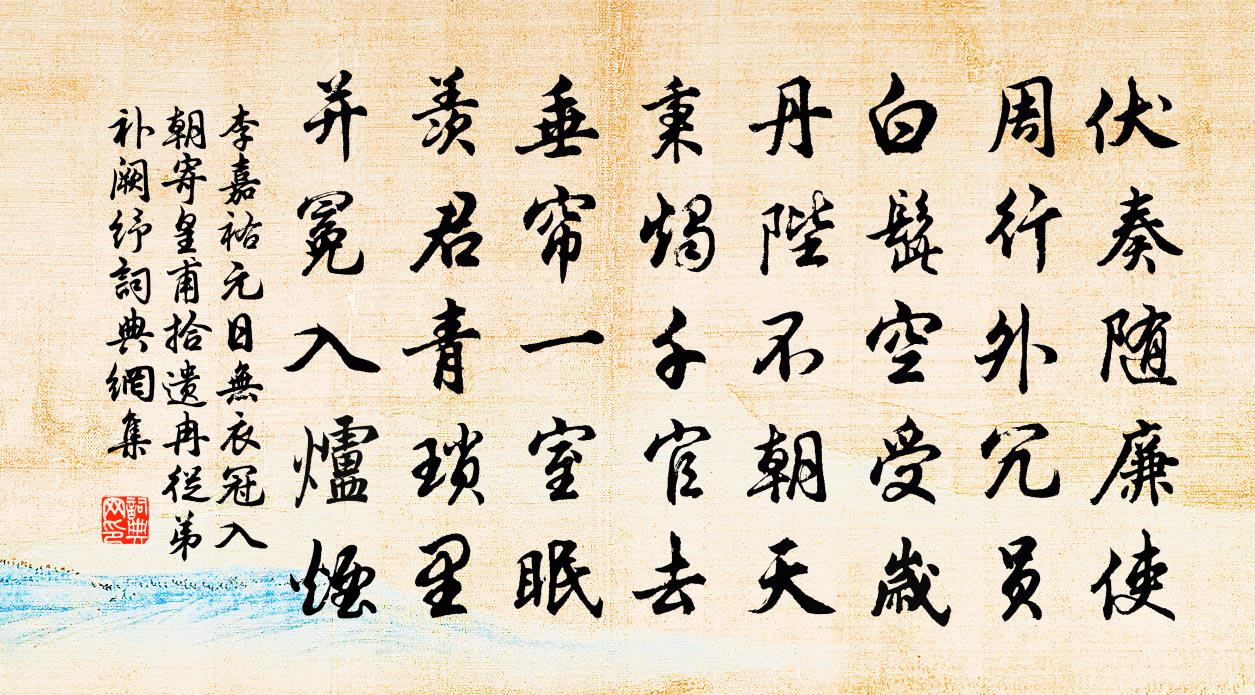 伏奏随廉使
周行外冗员
白髭空受歳
丹陛不朝天
秉燭千官去
垂帘一室眠
羨君青瑣里
并冕入爐煙
李嘉祐元日無衣冠入
朝寄皇甫拾遗冉從弟
补阙纾詞典網集
詞典
网印